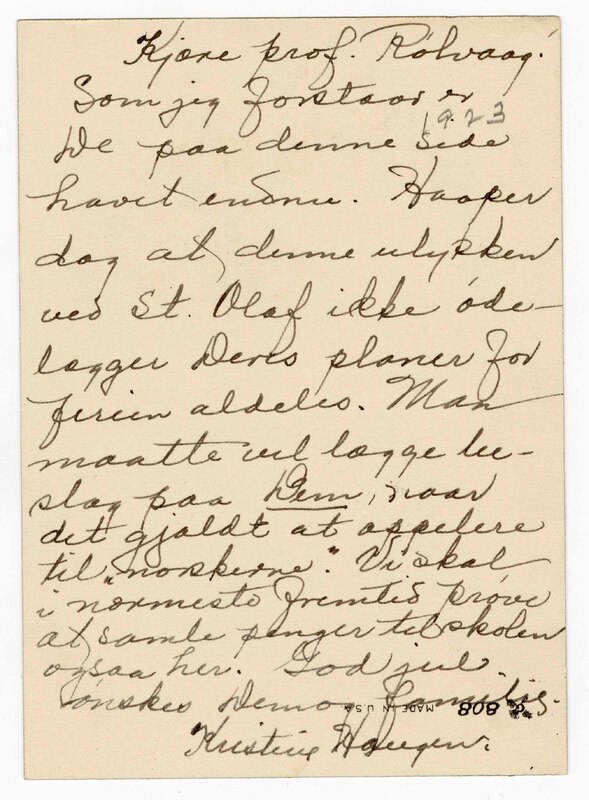 Kjære prof. Rølvaag!
Som jeg forstaar er
1923
De paa denne side
havet endnu. Haaper
dog at denne ulykken
ved St. Olaf ikke øde-
lægger Deres planer for
ferien aldeles. Man
maatte vel lægge be-
slag paa Dem, naar
det gjaldt at appelere
til "norskerne". Vi skal
i nærmeste fremtid prøve
at samle penger til skolen
ogsaa her. God jul
ønskes Dem familie.
MADE IN U.S.A.
808
Kristine Haugen.